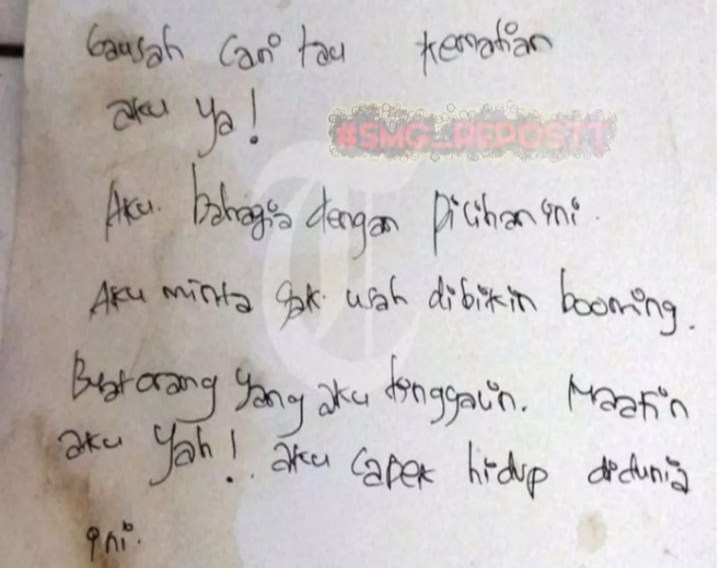 Gausah Cari tau kematian
aku ya!
#SMG_REPOSTT
Aku. bahagia dengan Pilihan ini.
Aku minta gak usah dibikin booming.
Buat orang yang aku tinggalin. Maafin
aku Yah! aku capek hidup didunia
ini.